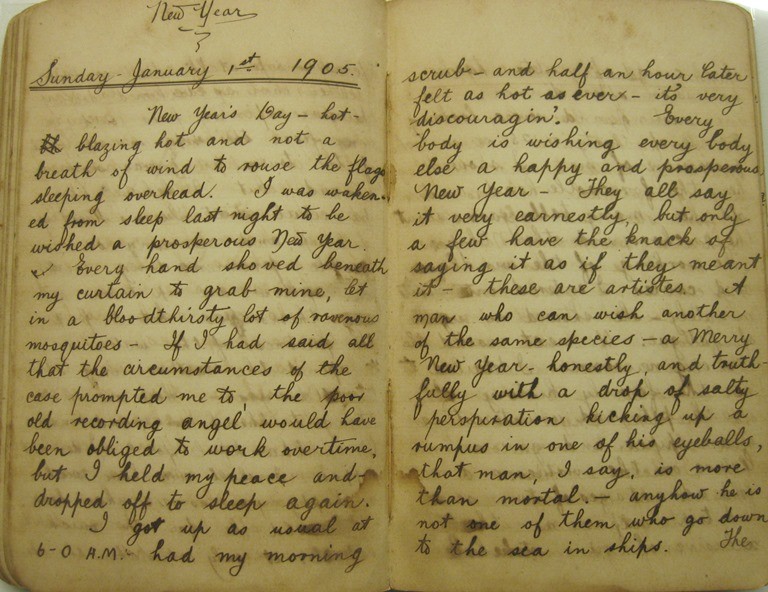 New Year
Sunday - January 1st 1905.
New Year's Day - hot -
blazing hot and not a
breath of wind to rouse the flags
sleeping overhead. I was waken-
ed from sleep last night to be
wished a prosperous New Year.
Every hand shoved beneath
my curtain to grab mine, let
in a bloodthirsty lot of ravenous
mosquitoes - If I had said all
that the circumstances of the
case prompted me to, the poor
old recording angel would have
been obliged to work overtime,
but I held my peace and
dropped off to sleep again.
I got up as usual at
6-0 A.M. - had my morning
scrub - and half an hour later
felt as hot as ever - it's very
discouragin'. Every
body is wishing every body
else a happy and prosperous
New Year - They all say
it very earnestly, but only
a few have the knack of
saying it as if they meant
it - these are artistes. A
man who can wish another
of the same species - a Merry
New Year - honestly, and truth-
fully with a drop of salty
perspiration kicking up a
rumpus in one of his eyeballs,
that man, I say, is more
than mortal. - anyhow he is
not one of them who go down
to the sea in ships. The